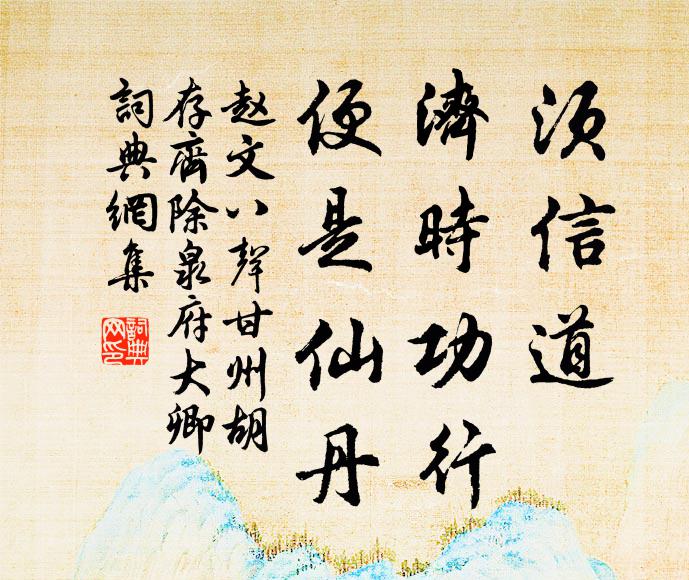 須信道
濟時功行
便是仙丹
赵文八聲甘州胡
存齋除泉府大卿
詞典網集
詞典
网印